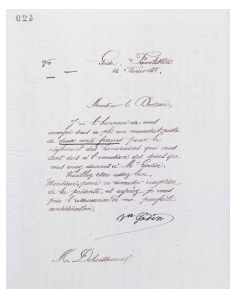 Guise, Familistère
Monsieur le Docteur,
J'ai l'honneur de vous
envoyer sous ce pli un mandat-poste
de deux cents francs pour le
règlement des honoraires qui vous
sont dus à l'occasion des soins que
vous avez donnés à Mr Godin.
Veuillez être assez bon,
Monsieur, pour m'accuser réception
de la présente, et agréez je vous
prie l'assurance de ma parfaite
considération.
Vve Godin